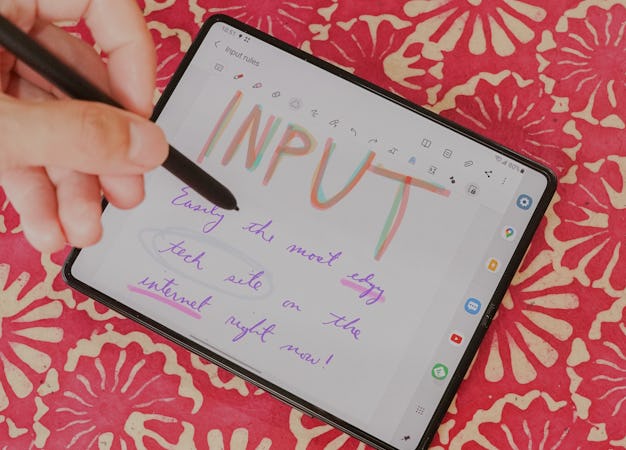 Input rules
INPUT
Easily the most edgy
tech site on the
internet right now!